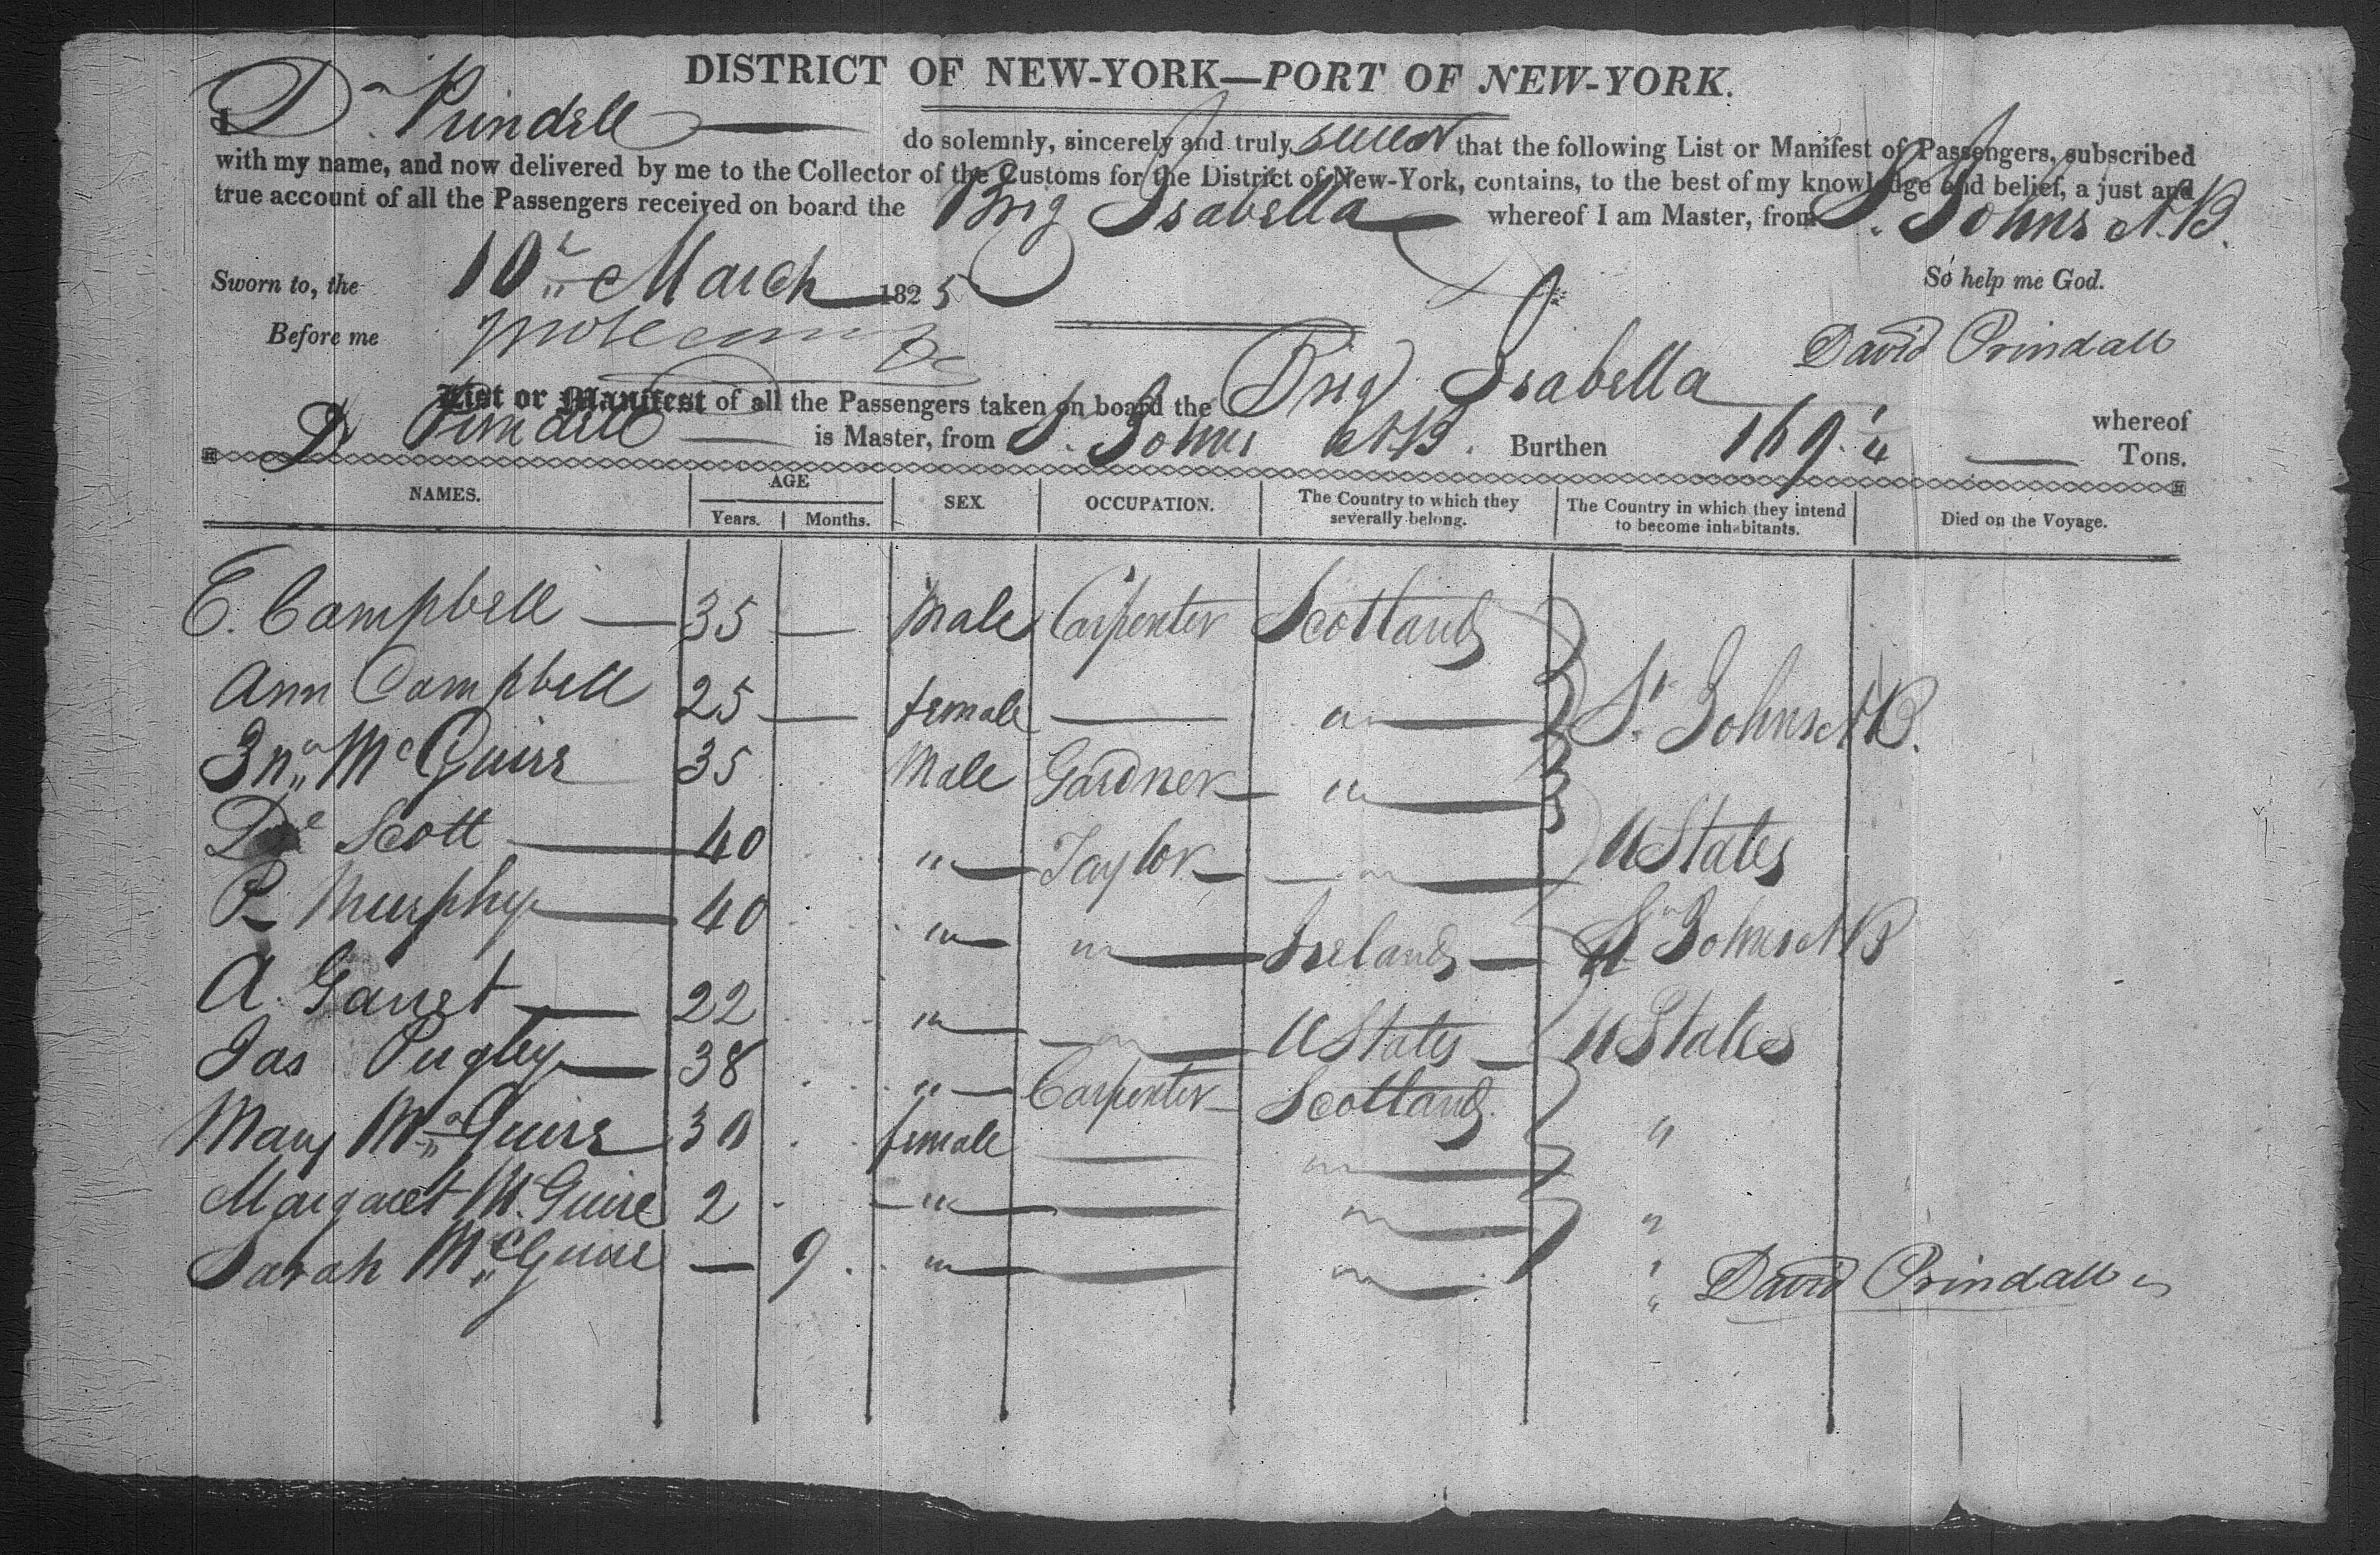 DISTRICT OF NEW-YORK—PORT OF NEW-YORK.
I D. Prindell do solemnly, sincerely and truly swear that the following List or Manifest of Passengers, subscribed
with my name, and now delivered by me to the Collector of the Customs for the District of New-York, contains, to the best of my knowledge and belief, a just and
true account of all the Passengers received on board the Brig Isabella whereof I am Master, from St. Johns N.B.
Sworn to, the 10th March 1825 So help me God.
Before me David Prindall
List or Manifest of all the Passengers taken on board the Brig Isabella whereof
D Prindell is Master, from St. Johns N.B. Burthen 169 1/4 Tons.
NAMES. AGE Years. Months. SEX. OCCUPATION. The Country to which they severally belong. The Country in which they intend to become inhabitants. Died on the Voyage.
E. Campbell — 35 — Male Carpenter Scotland
Ann Campbell 25 — female — " St. Johns N.B.
Jno McGuire 35 Male Gardner "
Dd Scott — 40 " Taylor " U States
P Murphy — 40 " " Ireland St Johns NB
A. Garret — 22 " " U States U States
Jas Pugley — 38 " Carpenter Scotland "
Mary McGuire 30 female — " "
Margaret McGuire 2 " — " "
Sarah McGuire — 9 " — " "
David Prindall